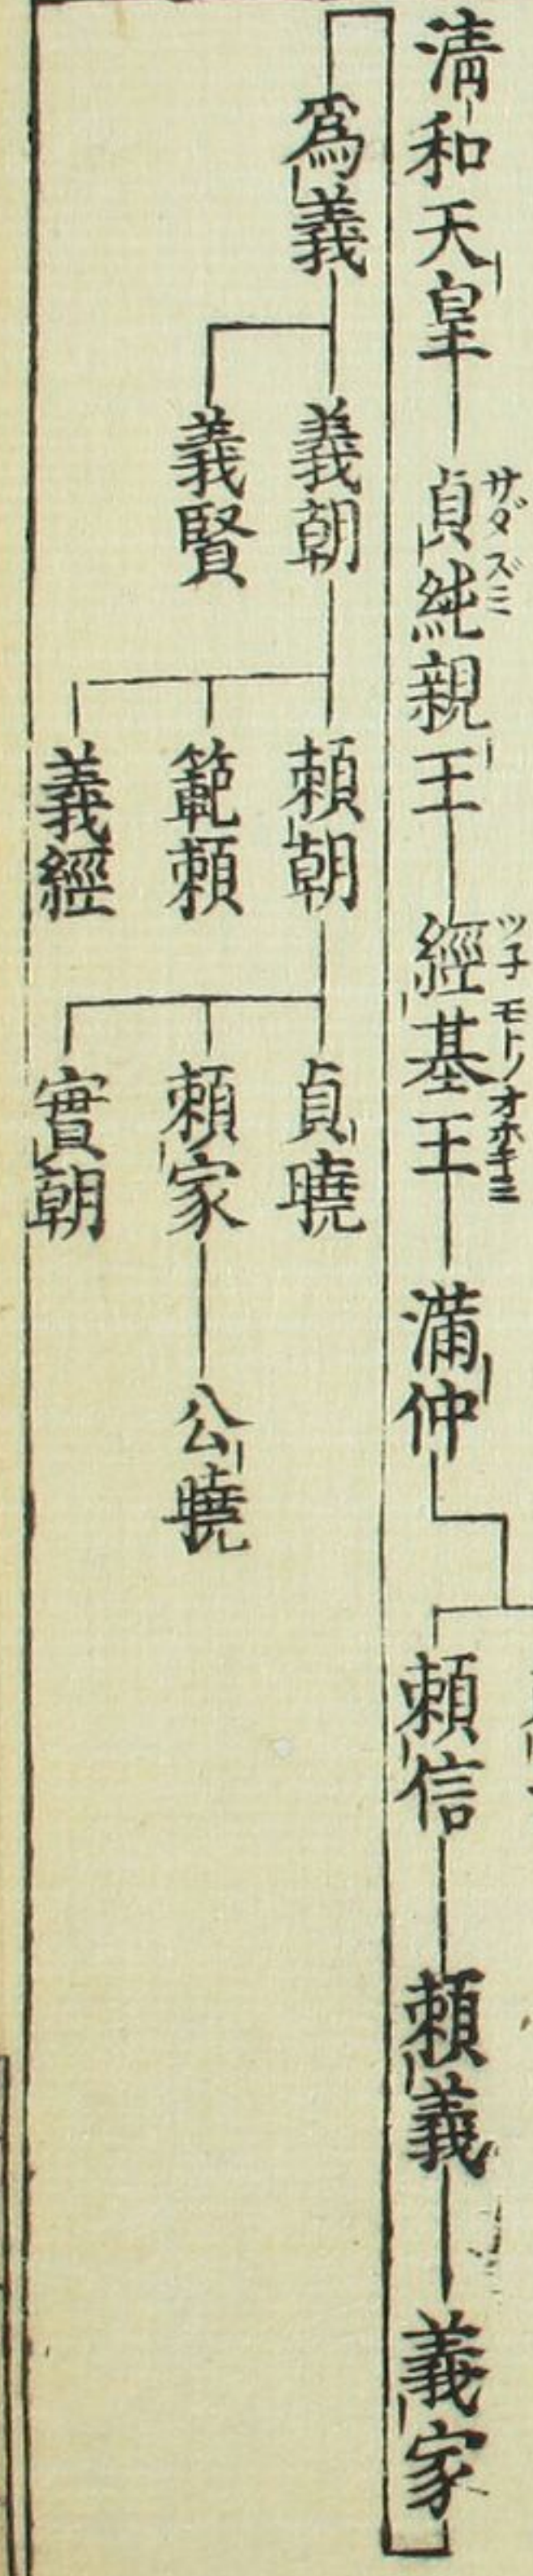 清和天皇
貞純親王
サダズミ
經基王
ツ子モトノオホキミ
滿仲
頼信
頼義
義家
爲義
義朝
義賢
頼朝
範頼
義經
貞暁
頼家
實朝
公暁